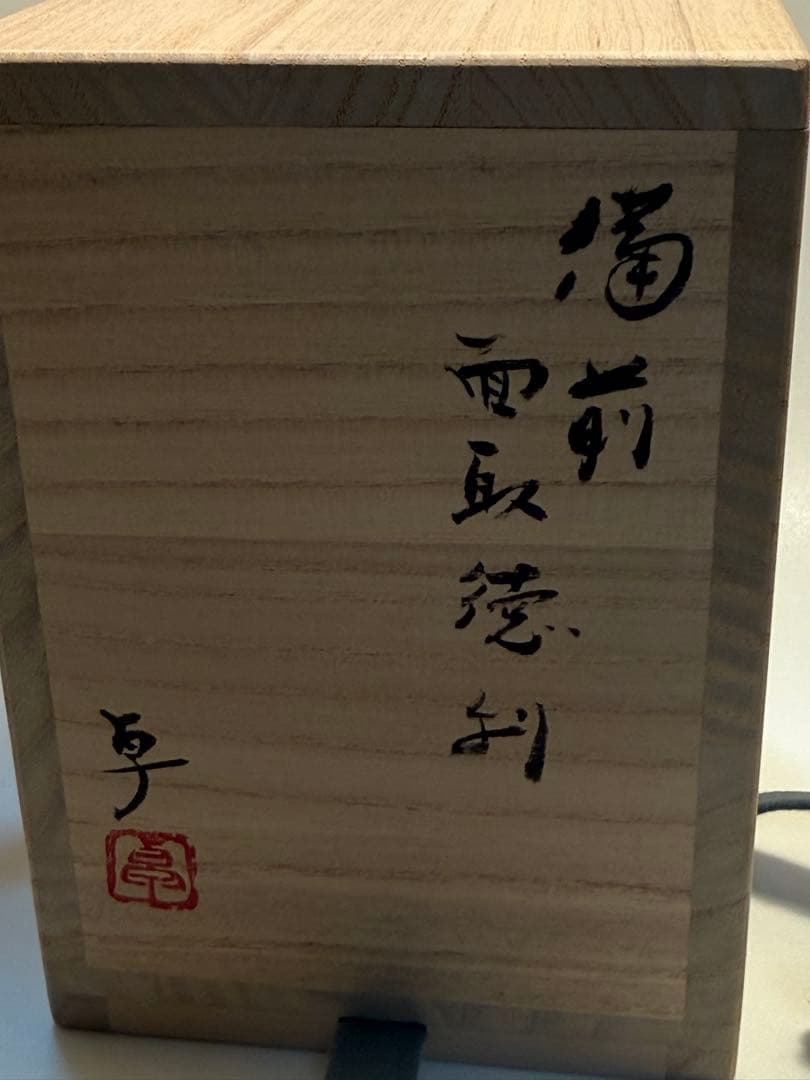 備前
面取徳利
卓